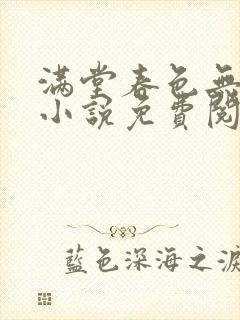 满堂春色無
小説免費閱
藍色深海之淚